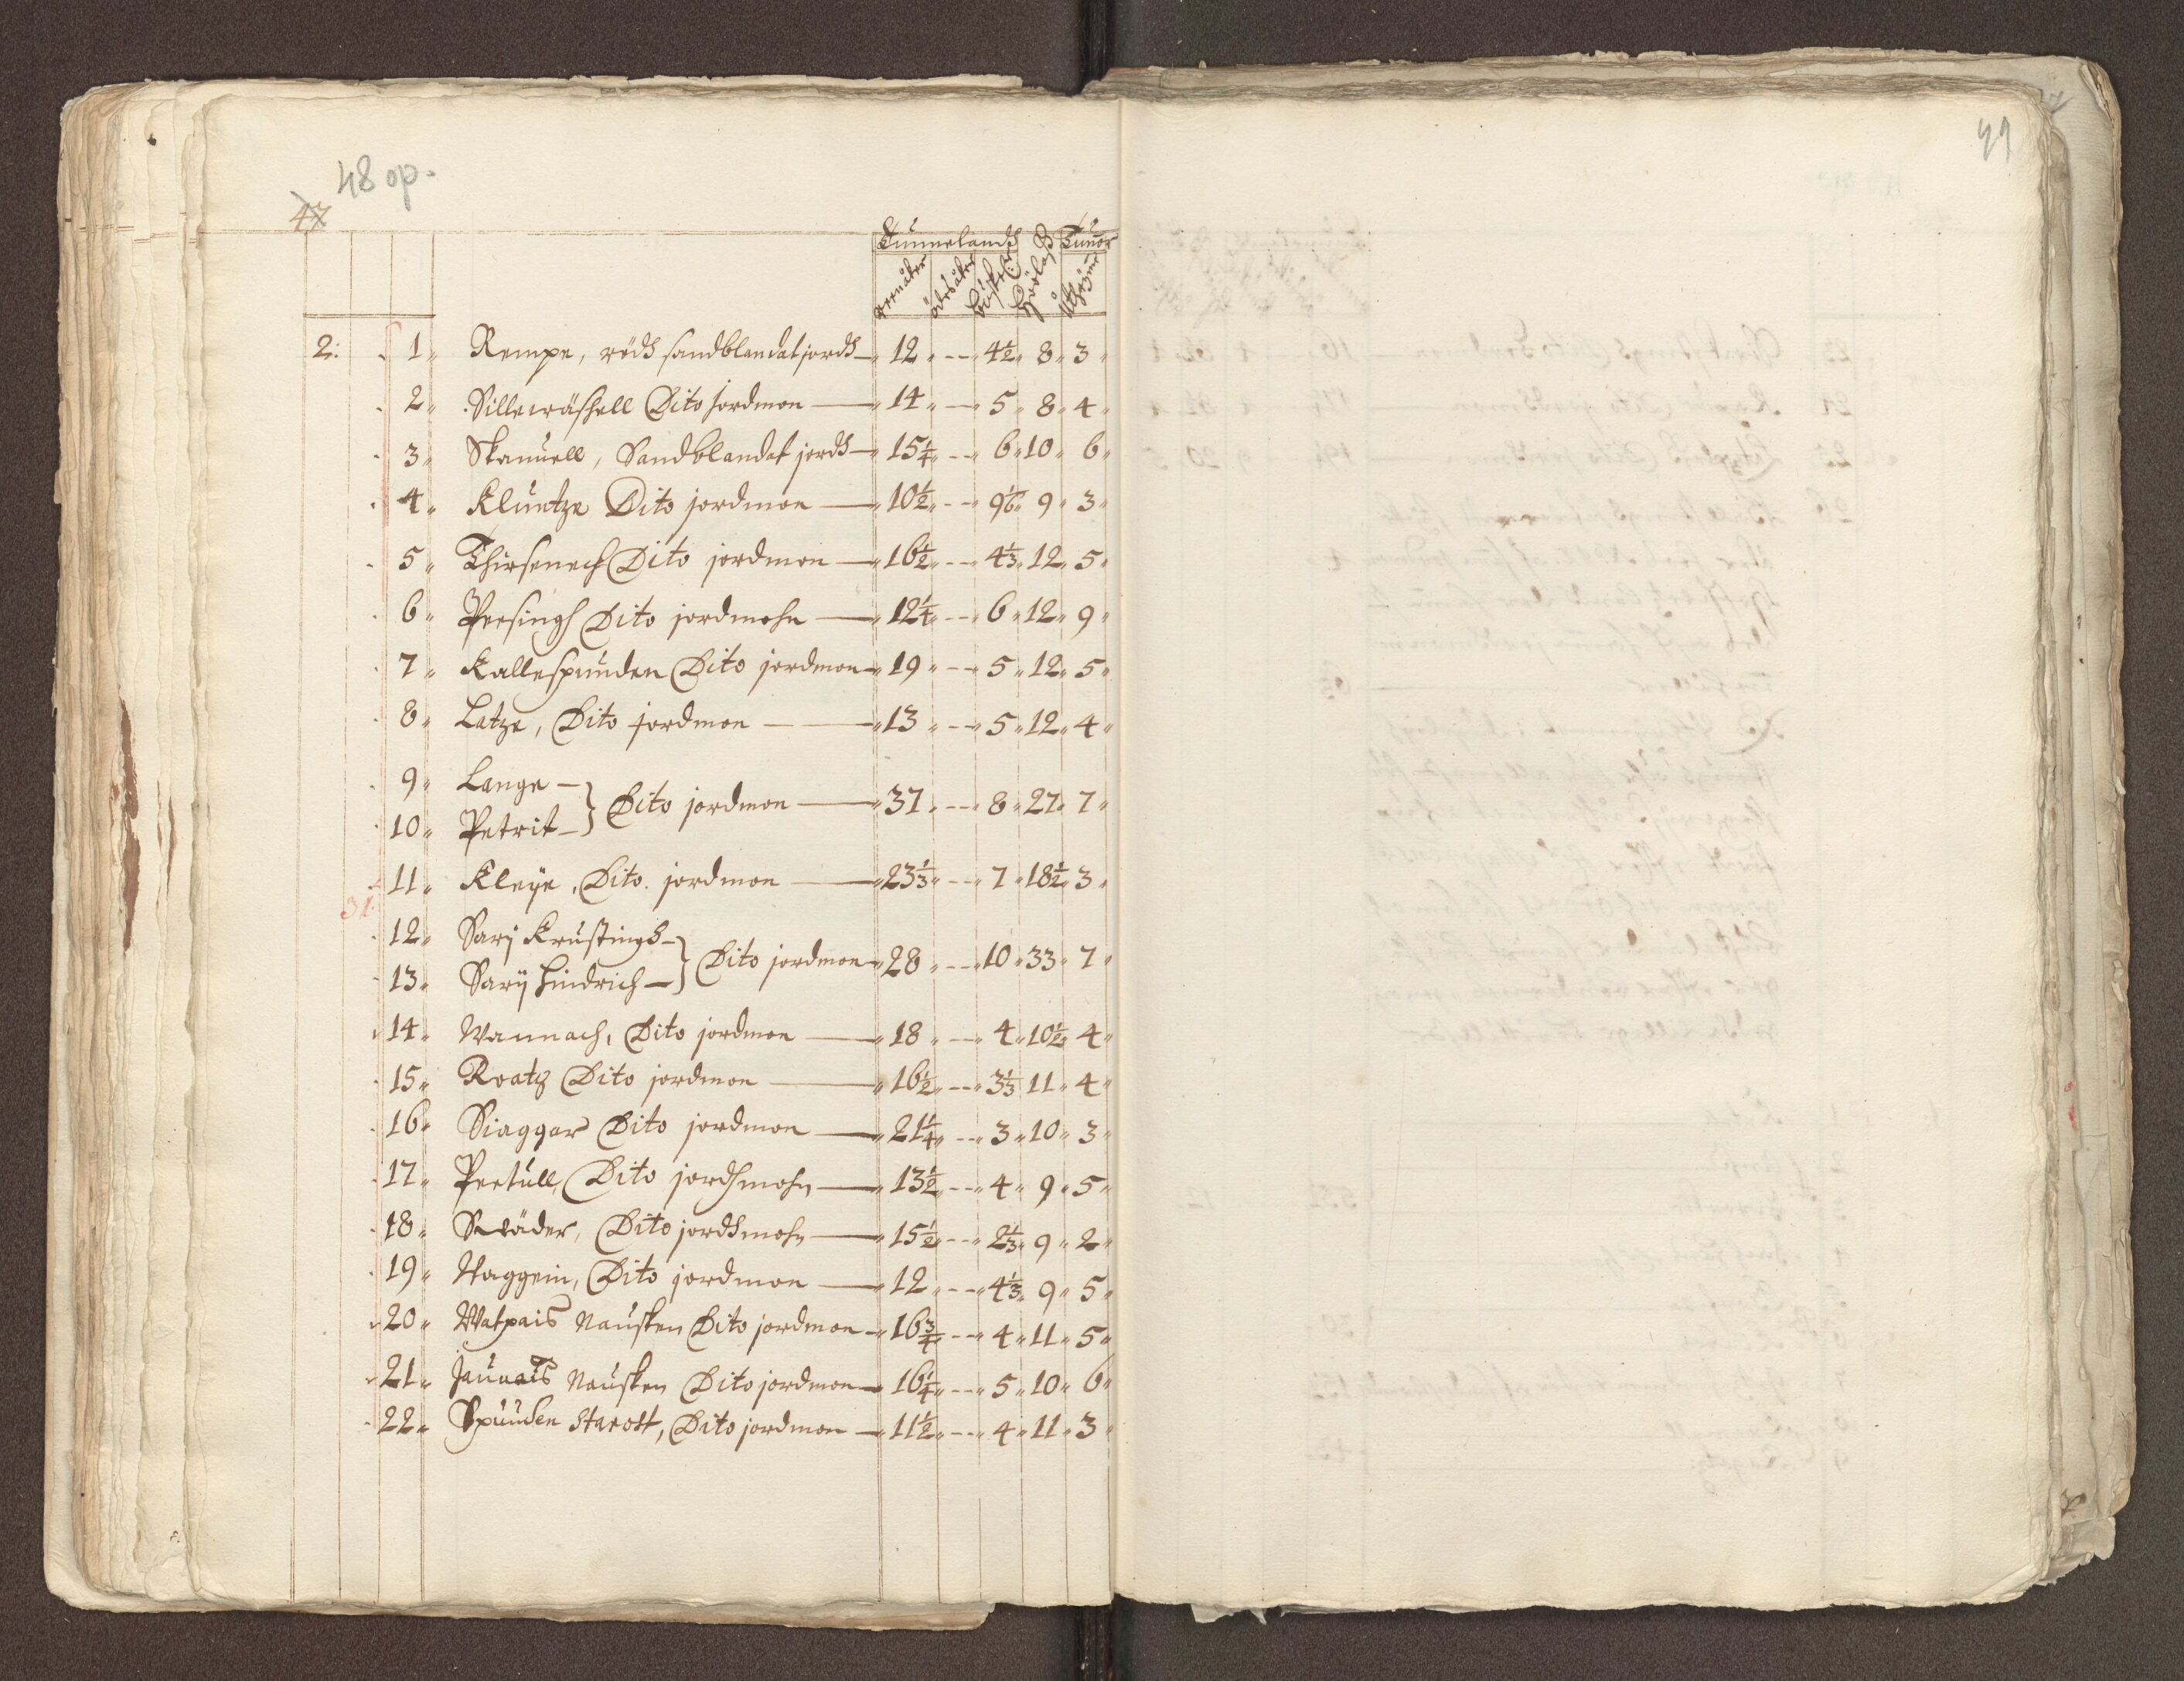 48 op.
47
Tunnelandh Tunor
öde åker Höölaß
2: 1 Rempe, rödh sandblandat jordh 12 4½ 8 3
2 Sillewäshell Dito jordmon 14 5 8 4
3 Skanuell, Sandblandat jordh 15¼ 6 10 6
4 Kluntze Dito jordmon 10½ 9⅙ 9 3
5 Thirsenech Dito jordmon 16½ 4⅓ 12 5
6 Persingh Dito jordmohn 12¼ 6 12 9
7 Kallespunden Dito jordmon 19 5 12 5
8 Latze, Dito jordmon 13 5 12 4
9 Lange
} Dito jordmon 37 8 27 7
10 Petrit
11 Kleÿe, Dito jordmon 23⅓ 7 18½ 3
31
12 Sarÿ Krustings
} Dito jordmon 28 10 33 7
13 Sarÿ Hindrich
14 Wannach, Dito jordmon 18 4 10½ 4
15 Roatz Dito jordmon 16½ 3⅓ 11 4
16 Siaggar Dito jordmon 21¼ 3 10 3
17 Pertull, Dito jordhmohn 13½ 4 9 5
18 Sräder, Dito jordhmohn 15½ 2⅓ 9 2
19 Naggein, Dito jordmon 12 4⅓ 9 5
20 Watpais Nausken Dito jordmon 16¾ 4 11 5
21 Jaunais Nausken Dito jordmon 16¼ 5 10 6
22 Spunden Starost, Dito jordmon 11½ 4 11 3
49